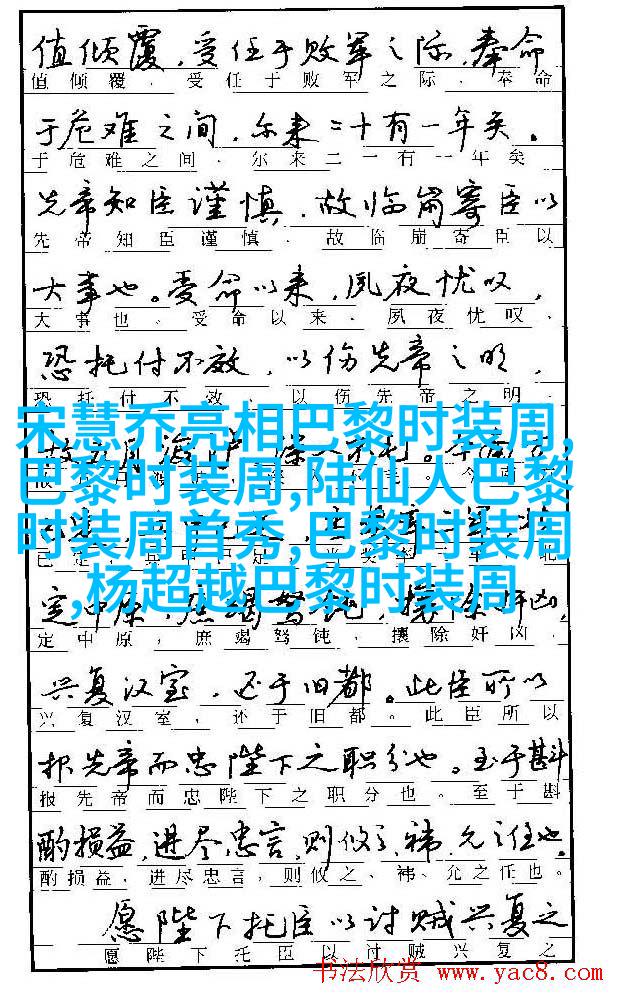 值倾覆，受任于败军之际，奉命
值倾覆，受任于败军之际，奉命
于危难之间，尔来二十有一年矣。
于危难之间，尔来二一有一年矣
先帝知臣谨慎，故临崩寄臣以
先帝知臣谨慎，故临崩寄臣以
大事也。受命以来，夙夜忧叹，
大事也。受命以来，夙夜忧叹，
恐托付不效，以伤先帝之明，
恐托付不效，以伤先帝之明，
宋慧乔亮相巴黎时装周,
巴黎时装周,陆仙人巴黎
时装周首秀,巴黎时装周
,杨超越巴黎时装周
定中原，庶竭驽钝，攘除奸凶，
定中原，庶竭驽钝，攘除奸凶，
兴复汉室，还于旧都。此臣所以
兴复汉室，还于旧都。此臣所以
报先帝而忠陛下之职分也。至于斟
报先帝而忠陛下之职分也。至于斟
酌损益，进尽忠言，则攸之、祎、允之任也。
酌损益，进尽忠言，则攸之、祎、允之任也。
愿陛下托臣以讨贼兴复之
愿陛下托臣以讨贼兴复之
书法欣赏 www.yac8.com